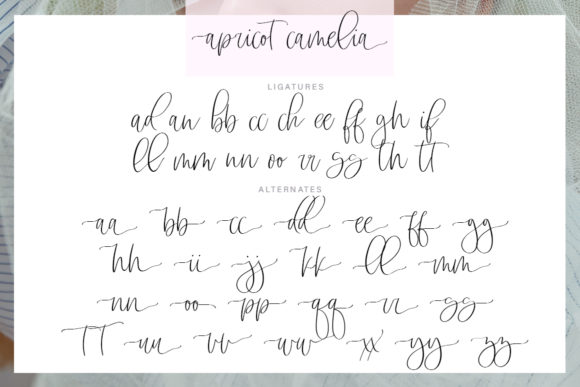 apricot camelia
LIGATURES
ad an bb cc ch ee ff gh if
ll mm nn oo rr ss th tt
ALTERNATES
aa bb cc dd ee ff gg
hh ii jj kk ll mm
nn oo pp qq rr ss
TT uu vv ww xx yy zz